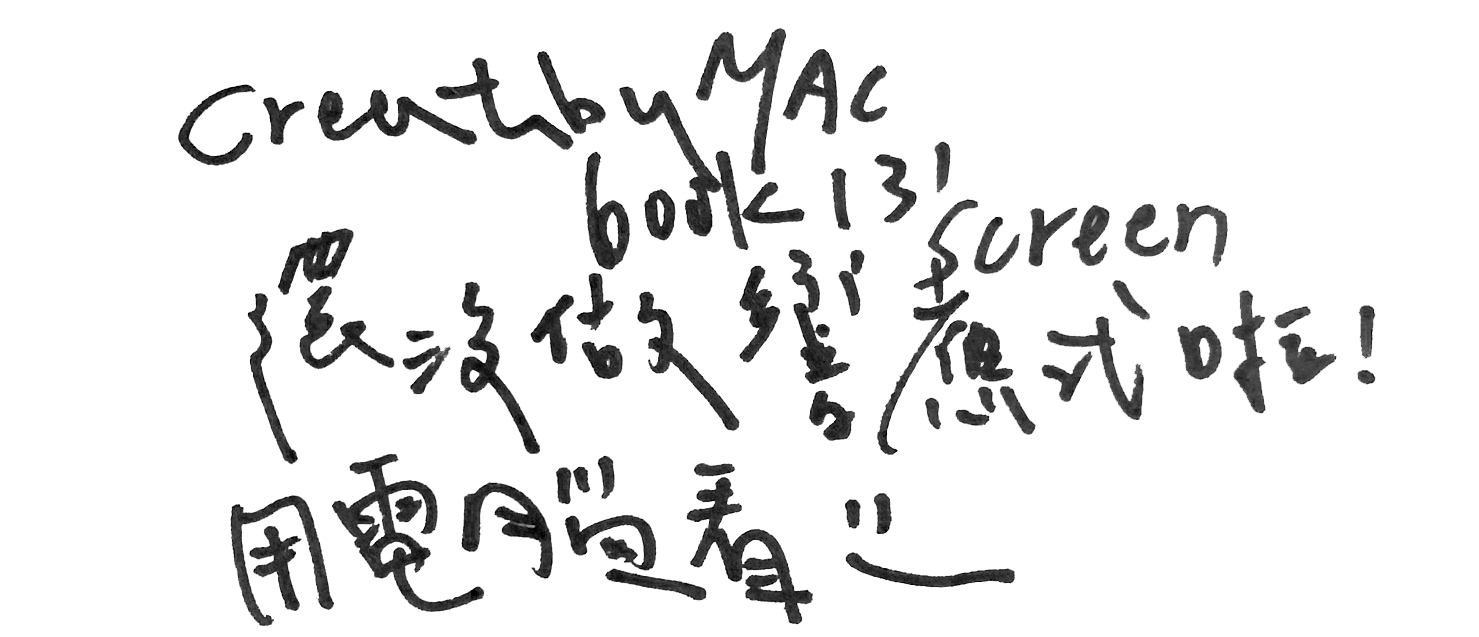 Creat by MAC
book 13'
screen
還沒做響應式啦!
用電腦看